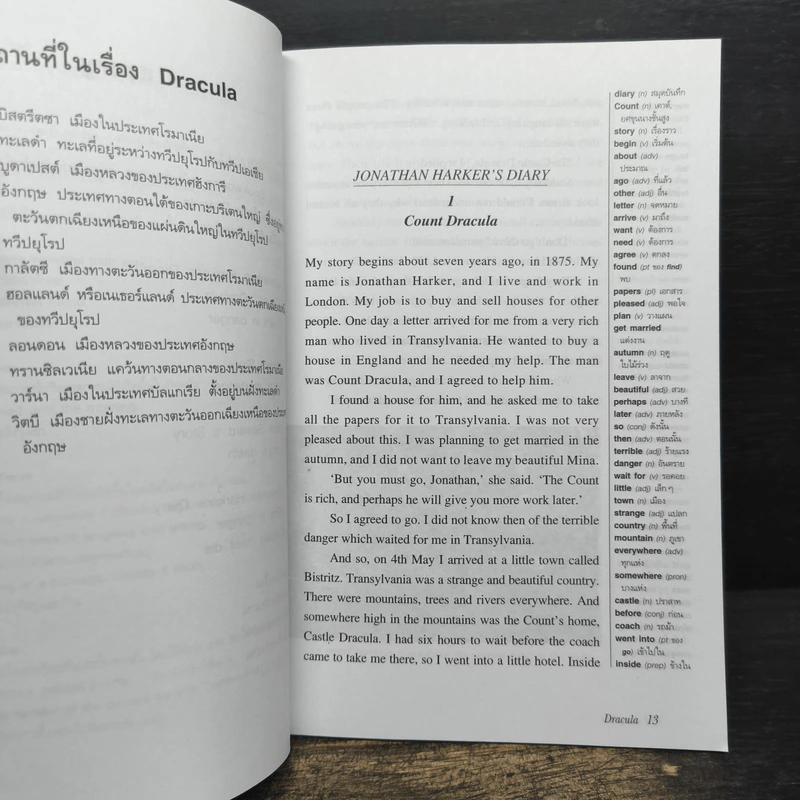 านที่ในเรื่อง Dracula
บิสตรีตซา เมืองในประเทศโรมาเนีย
ทะเลดำ ทะเลที่อยู่ระหว่างทวีปยุโรปกับทวีปเอเชีย
บูดาเปสต์ เมืองหลวงของประเทศฮังการี
อังกฤษ ประเทศทางตอนใต้ของเกาะบริเตนใหญ่ ซึ่งอยู่
ตะวันตกเฉียงเหนือของแผ่นดินใหญ่ในทวีปยุโรป
ทวีปยุโรป
กาลัตซี เมืองทางตะวันออกของประเทศโรมาเนีย
ฮอลแลนด์ หรือเนเธอร์แลนด์ ประเทศทางตะวันตกเฉียงเหนือ
ของทวีปยุโรป
ลอนดอน เมืองหลวงของประเทศอังกฤษ
ทรานซิลเวเนีย แคว้นทางตอนกลางของประเทศโรมาเนีย
วาร์นา เมืองในประเทศบัลแกเรีย ตั้งอยู่บนฝั่งทะเลดำ
วิตบี เมืองชายฝั่งทะเลทางตะวันออกเฉียงเหนือของประเทศ
อังกฤษ
JONATHAN HARKER'S DIARY
I
Count Dracula
My story begins about seven years ago, in 1875. My
name is Jonathan Harker, and I live and work in
London. My job is to buy and sell houses for other
people. One day a letter arrived for me from a very rich
man who lived in Transylvania. He wanted to buy a
house in England and he needed my help. The man
was Count Dracula, and I agreed to help him.
I found a house for him, and he asked me to take
all the papers for it to Transylvania. I was not very
pleased about this. I was planning to get married in the
autumn, and I did not want to leave my beautiful Mina.
'But you must go, Jonathan,' she said. 'The Count
is rich, and perhaps he will give you more work later.'
So I agreed to go. I did not know then of the terrible
danger which waited for me in Transylvania.
And so, on 4th May I arrived at a little town called
Bistritz. Transylvania was a strange and beautiful country.
There were mountains, trees and rivers everywhere. And
somewhere high in the mountains was the Count's home,
Castle Dracula. I had six hours to wait before the coach
came to take me there, so I went into a little hotel. Inside
diary (n) สมุดบันทึก
Count (n) เคาต์,
ยศขุนนางชั้นสูง
story (n) เรื่องราว
begin (v) เริ่มต้น
about (adv)
ประมาณ
ago (adv) ที่แล้ว
other (adj) อื่น
letter (n) จดหมาย
arrive (v) มาถึง
want (v) ต้องการ
need (v) ต้องการ
agree (v) ตกลง
found (pt ของ find)
พบ
papers (pl) เอกสาร
pleased (adj) พอใจ
plan (v) วางแผน
get married
แต่งงาน
autumn (n) ฤดู
ใบไม้ร่วง
leave (v) ลาจาก
beautiful (adj) สวย
perhaps (adv) บางที
later (adv) ภายหลัง
so (conj) ดังนั้น
then (adv) ตอนนั้น
terrible (adj) ร้ายแรง
danger (n) อันตราย
wait for (v) รอคอย
little (adj) เล็กๆ
town (n) เมือง
strange (adj) แปลก
country (n) พื้นที่
mountain (n) ภูเขา
everywhere (adv)
ทุกแห่ง
somewhere (pron)
บางแห่ง
castle (n) ปราสาท
before (conj) ก่อน
coach (n) รถม้า
went into (pt ของ
go) เข้าไปใน
inside (prep) ข้างใน
Dracula 13